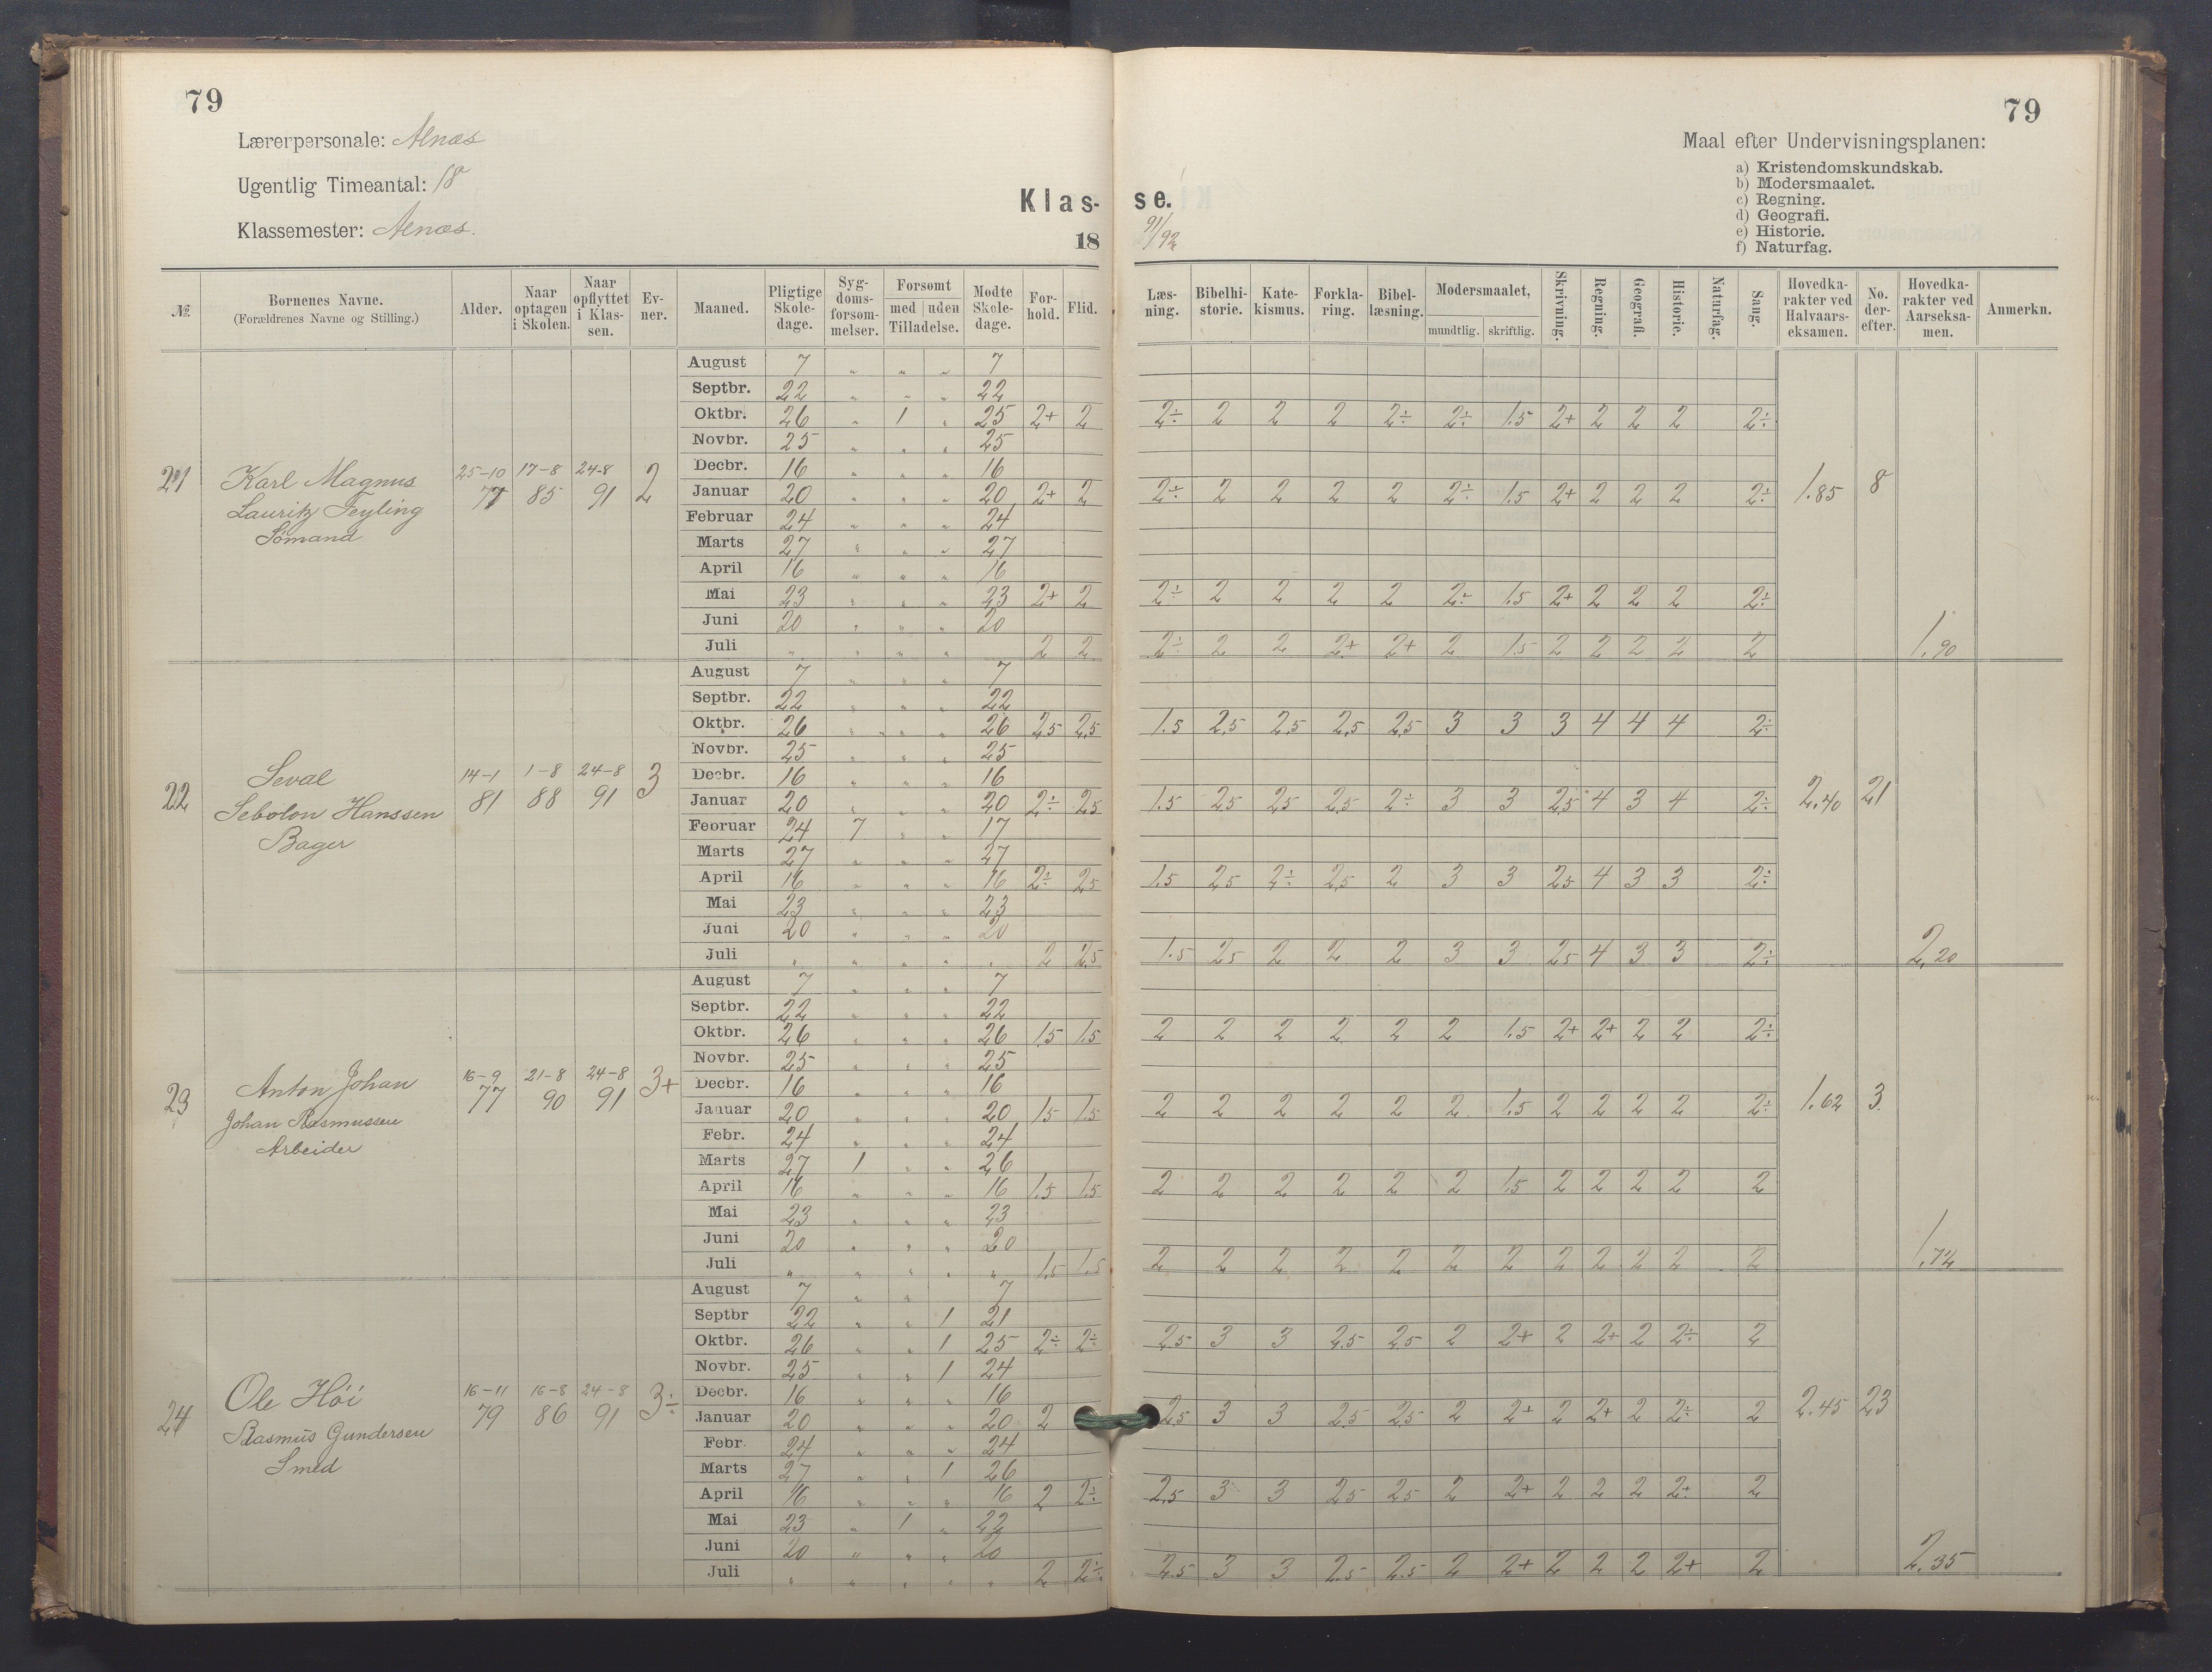 79
79
Lærerpersonale: Alnæs
Ugentlig Timeantal: 18
Klassemester: Alnæs.
Klas-
se.
18
91/92
Maal efter Undervisningsplanen:
a) Kristendomskundskab.
b) Modersmaalet.
c) Regning.
d) Geografi.
e) Historie.
f) Naturfag.
№ Børnenes Navne. (Forældrenes Navne og Stilling.) Alder. Naar optagen i Skolen. Naar opflyttet i Klassen. Ev-ner. Maaned. Pligtige Skole-dage. Syg-doms-forsøm-melser. Forsømt med uden Tilladelse. Mødte Skole-dage. For-hold. Flid. Læs-ning. Bibelhi-storie. Kate-kismus. Forkla-ring. Bibel-læsning. Modersmaalet, mundtlig. skriftlig. Skrivning. Regning. Geografi. Historie. Naturfag. Sang. Hovedka-rakter ved Halvaars-eksamen. No. der-efter. Hovedka-rakter ved Aarseksa-men. Anmerkn.
21 Karl Magnus
Lauritz Feyling
Sömand
25-10 77 17-8 85 24-8 91 2
August 7 " " " 7
Septbr. 22 " " " 22
Oktbr. 26 " 1 " 25 2+ 2 2÷ 2 2 2 2÷ 2÷ 1.5 2+ 2 2 2 2÷
Novbr. 25 " " " 25
Decbr. 16 " " " 16
Januar 20 " " " 20 2+ 2 2÷ 2 2 2 2 2÷ 1.5 2+ 2 2 2 2÷ 1.85 8
Februar 24 " " " 24
Marts 27 " " " 27
April 16 " " " 16
Mai 23 " " " 23 2+ 2 2÷ 2 2 2 2 2÷ 1.5 2+ 2 2 2 2÷
Juni 20 " " " 20
Juli " " " " 2 2 2÷ 2 2 2+ 2+ 2 1.5 2 2 2 2 2 1.90
22 Seval
Sebolon Hanssen
Bager
14-1 81 1-8 88 24-8 91 3
August 7 " " " 7
Septbr. 22 " " " 22
Oktbr. 26 " " " 26 2,5 2,5 1.5 2,5 2,5 2,5 2,5 3 3 3 4 4 4 2÷
Novbr. 25 " " " 25
Decbr. 16 " " " 16
Januar 20 " " " 20 2÷ 2,5 1.5 2,5 2,5 2,5 2÷ 3 3 2,5 4 3 4 2÷ 2,40 21
Februar 24 7 " " 17
Marts 27 " " " 27
April 16 " " " 16 2÷ 2,5 1.5 2,5 2÷ 2,5 2 3 3 2,5 4 3 3 2÷
Mai 23 " " " 23
Juni 20 " " " 20
Juli " " " " " 2 2,5 1.5 2,5 2 2 2 3 3 2,5 4 3 3 2÷ 2,20
23 Anton Johan
Johan Rasmussen
Arbeider
16-9 77 21-8 90 24-8 91 3+
August 7 " " " 7
Septbr. 22 " " " 22
Oktbr. 26 " " " 26 1.5 1.5 2 2 2 2 2 2 1.5 2+ 2+ 2 2 2÷
Novbr. 25 " " " 25
Decbr. 16 " " " 16
Januar 20 " " " 20 1.5 1.5 2 2 2 2 2 2 1.5 2 2 2 2 2÷ 1.62 3
Febr. 24 " " " 24
Marts 27 1 " " 26
April 16 " " " 16 1.5 1.5 2 2 2 2 2 2 1.5 2 2 2 2 2
Mai 23 " " " 23
Juni 20 " " " 20
Juli " " " " " 1.5 1.5 2 2 2 2 2 2 2 2 2 2 2 2
24 Ole Höi
Rasmus Gundersen
Smed
16-11 79 16-8 86 24-8 91 3÷
August 7 " " 7
Septbr 22 " " 1 21
Oktbr. 26 " " 1 25 2÷ 2÷ 2,5 3 3 2,5 2,5 2 2+ 2 2+ 2 2÷ 2
Novbr. 25 " " 1 24
Decbr. 16 " " " 16
Januar 20 " " " 20 2 2,5 3 3 2,5 2,5 2 2+ 2 2+ 2 2÷ 2 2.45 23
Febr. 24 " " " 24
Marts 27 " " 1 26
April 16 " " " 16 2 2÷ 2,5 3 3 2,5 2,5 2 2+ 2 2 2 2÷ 2
Mai 23 " 1 " 22
Juni 20 " " " 20
Juli " " " " " 2 2÷ 2.5 3 3 2.5 2.5 2 2+ 2 2 2 2+ 2 2,35